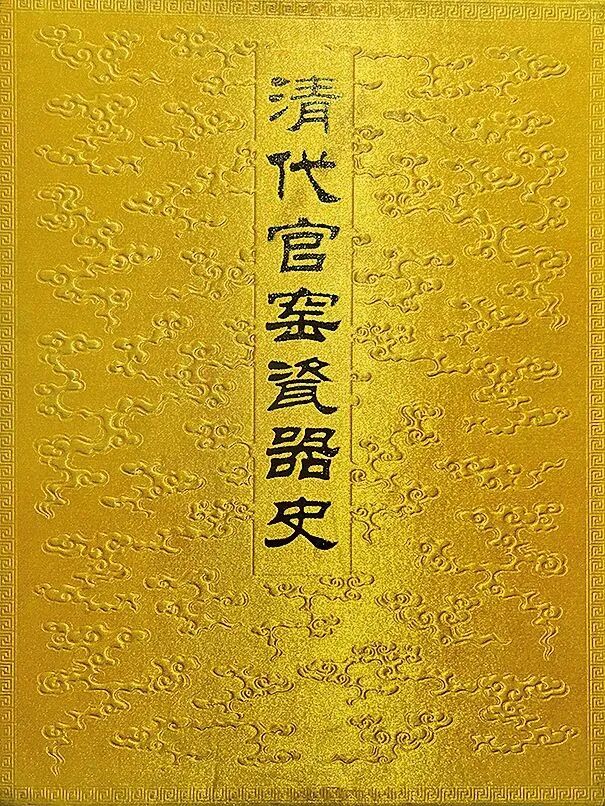 清代官窑瓷器史